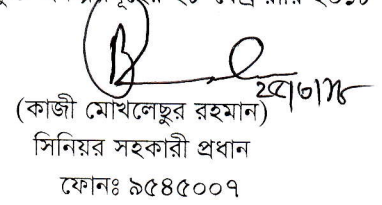 (কাজী মোখলেছুর রহমান)
সিনিয়র সহকারী প্রধান
ফোনঃ ৯৫৪৫০০৭